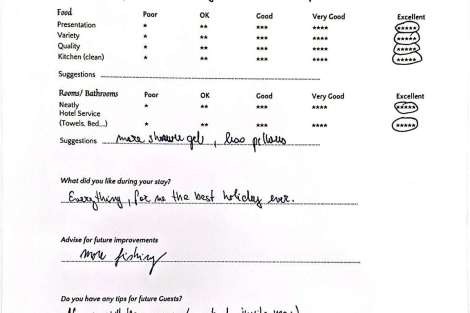 Food Poor OK Good Very Good Excellent
Presentation * ** *** **** *****
Variety * ** *** **** *****
Quality * ** *** **** *****
Kitchen (clean) * ** *** **** *****
Suggestions
Rooms/ Bathrooms Poor OK Good Very Good Excellent
Neatly * ** *** **** *****
Hotel Service
(Towels, Bed...) * ** *** **** *****
Suggestions more shower gel, less pillows
What did you like during your stay?
Everything, for me the best holiday ever.
Advise for future improvements
more fishing
Do you have any tips for future Guests?